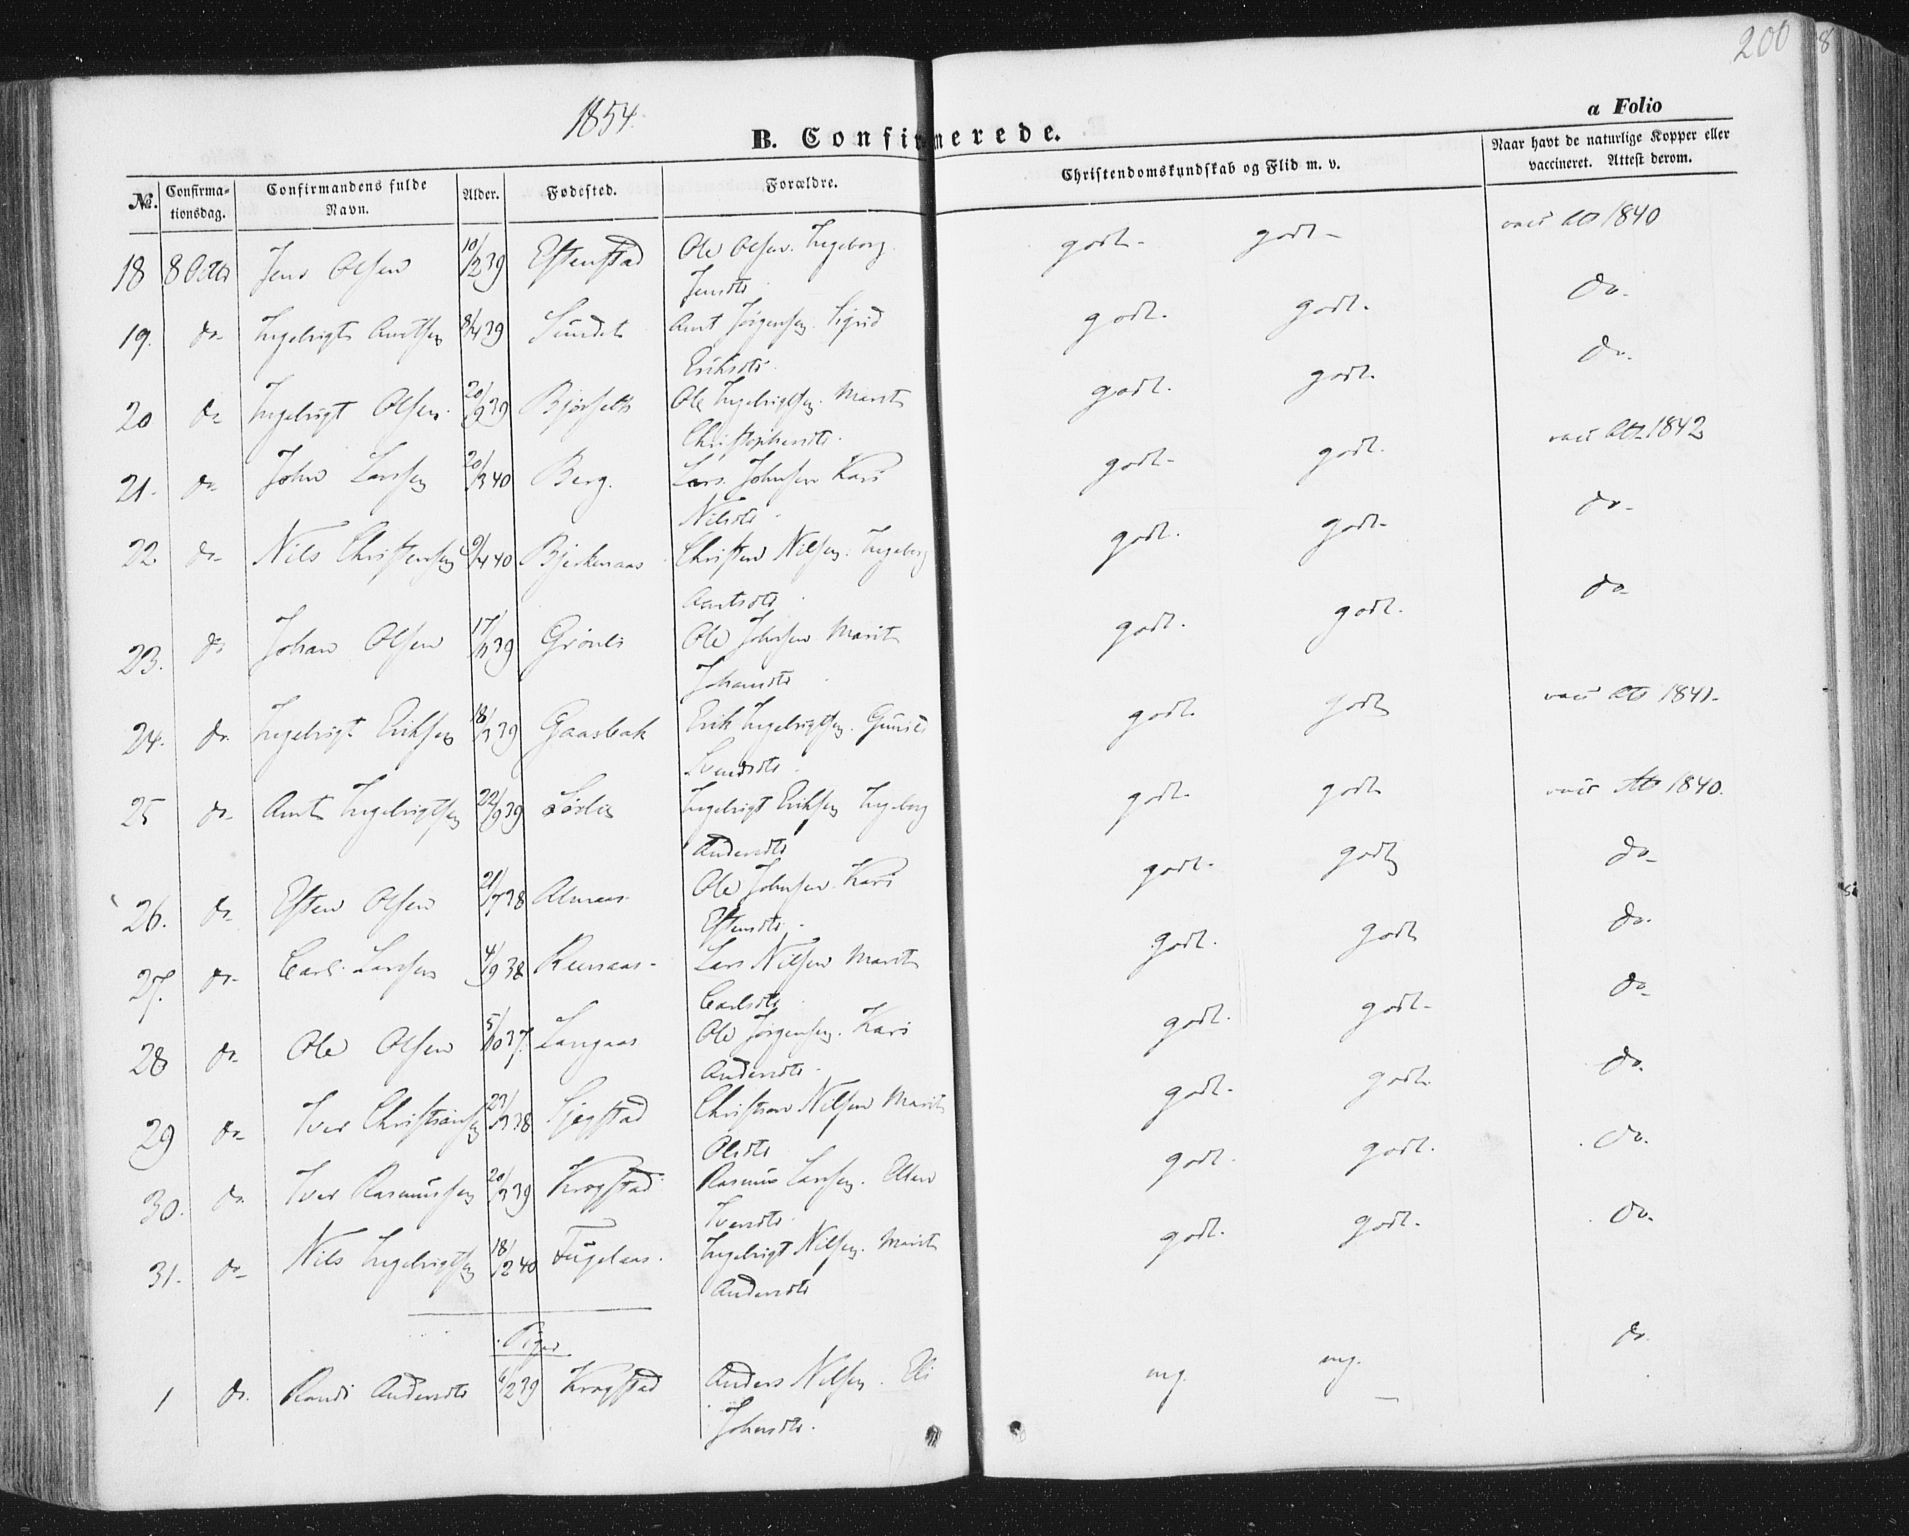 200
8
1854.
B. Confirmerede.
a Folio
№. Confirma-tionsdag. Confirmandens fulde Navn. Alder. Fødested. Forældre. Christendomskundskab og Flid m. v. Naar havt de naturlige Kopper eller vaccineret. Attest derom.
18 8 Octbr Jens Olsen 10/2 39 Estenstad Ole Olsen. Ingeborg godt- godt- 1840
Jensdtr
19. do Ingebrigt Arntsen 39 Sundet Arnt Jørgensen. Sigrid godt. godt. do.
Eriksdtr.
20 do Ingebrigt Olsen. 20/9 39 Ole Ingebrigtsen. Marit godt. godt. do.
Christophersdtr.
21. do John Larsen 20/3 40 Berg. Lars Johnsen Kari godt- godt. 1842
Nilsdtr
22. do Nils Christensen 40 Bjerkenaas Christen Nilsen. Ingeborg godt. godt- do-
Arntsdtr
23. do Johan Olsen 39 Grønli Ole Johnsen Marit godt. godt. do-
Johansdtr
24. do. Ingebrigt Eriksen 39 Gaasbak Erik Ingebrigtsen. Gunild godt. godt 1841.
Svendsdtr
25 do- Arnt Ingebrigtsen 22/9 39 Sørlie Ingebrigt Eriksen Ingeborg godt. godt 1840.
Andersdtr
26. do. Esten Olsen 21/7 38 Almaas Ole Johnsen. Kari godt- godt do-
Estensdtr.
27. do- Carl Larsen 4/9 38 Reenaas- Lars Nilsen Marit godt. godt do.
Carlsdtr
28 do Ole Olsen 5/10 37. Langaas Ole Jørgensen. Kari godt. godt- do-
Andersdtr.
29 do- Iver Christiansen 38 Christian Nilsen Marit godt- godt. do.
Olsdtr
30. do. Iver Rasmussen 20/3 39 Krogstad Rasmus Larsen. Ellen godt. godt. do.
Iversdtr.
31. do- Nils Ingebrigtsen 18/2 40 Fuglaas. Ingebrigt Nilsen. Marit godt. godt. do.
Andersdtr
Piger
1 do. Randi Andersdtr 6/2 39 Krogstad Anders Nilsen. Eli mg. mg. do
Johnsdtr.